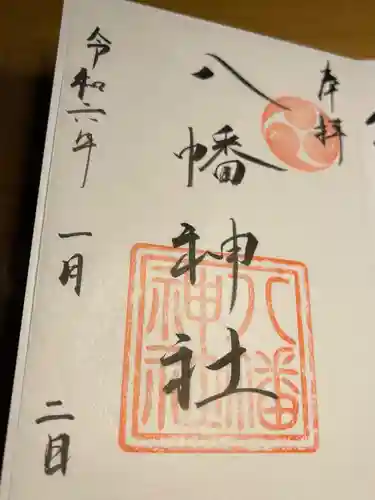 奉拝
八幡神社
八幡神社
令和六年
一月
二日